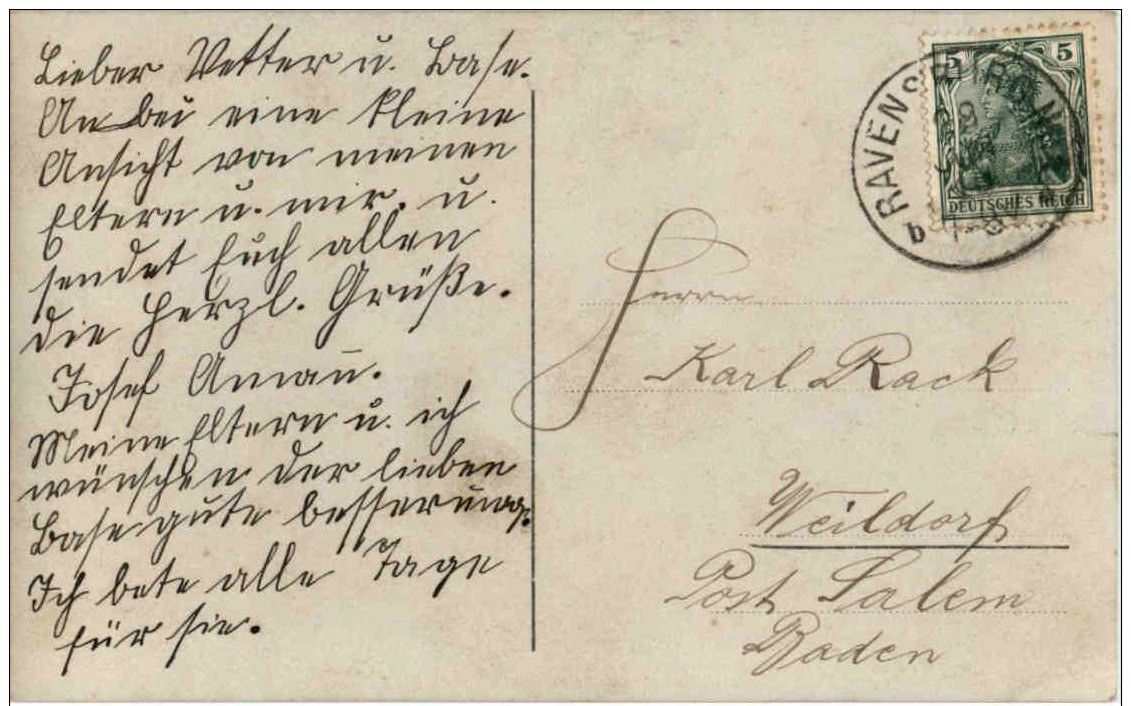 Lieber Vetter u. Base.
Anbei eine kleine
Ansicht von meinen
Eltern u. mir. u.
sendet Euch allen
die Herzl. Grüße.
Josef Amann.
Meine Eltern u. ich
wünschen der lieben
Base gute besserung.
Ich bete alle Tage
für sie.
RAVENSBURG
b
5 5
DEUTSCHES REICH
Herrn
Karl Rack
Weildorf
Post Salem
Baden